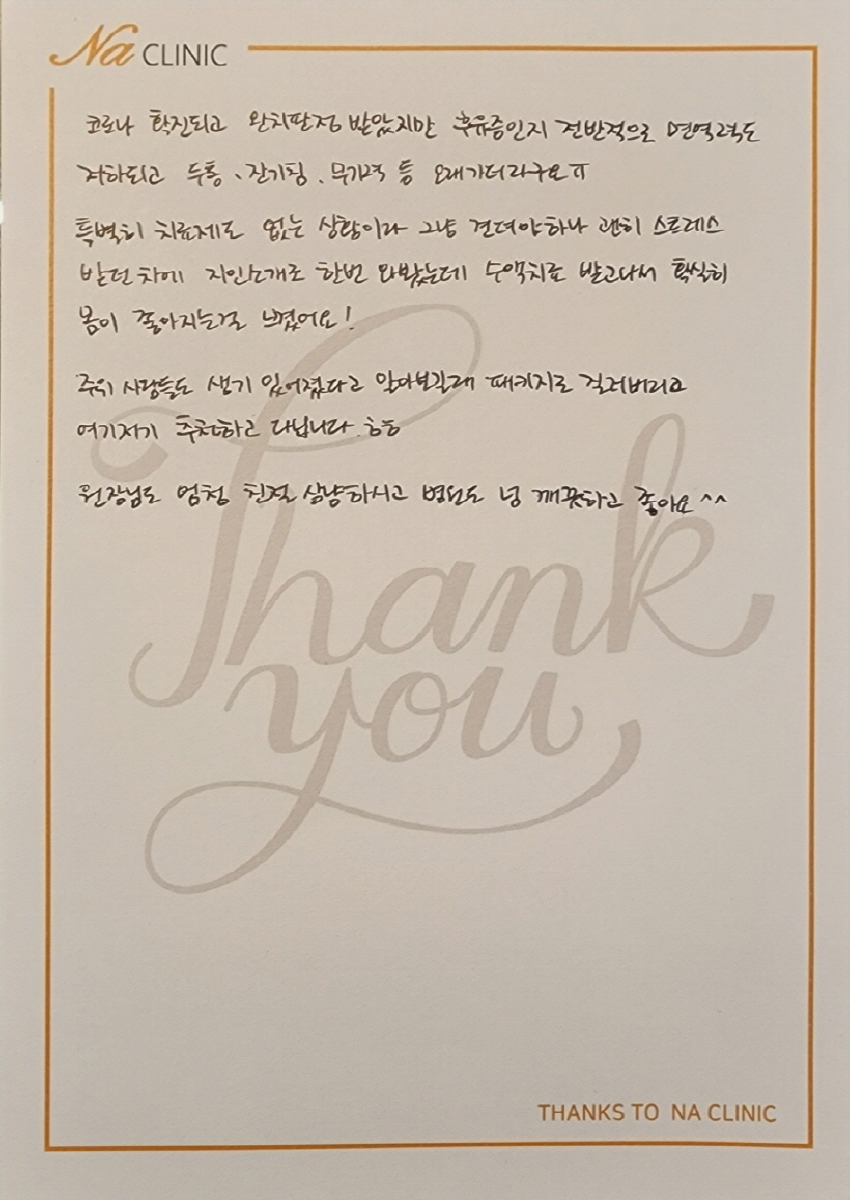 Na CLINIC
코로나 확진되고 완치판정 받았지만 후유증인지 전반적으로 면역력도
저하되고 두통, 잔기침, 무기력 등 오래가더라구요ㅠ
특별히 치료제도 없는 상황이라 그냥 견뎌야하나 괜히 스트레스
받던차에 지인소개로 한번 와봤는데 수액치료 받고나서 확실히
몸이 좋아지는걸 느꼈어요!
주위 사람들도 생기 있어졌다고 알아보길래 패키지로 질러버리고
여기저기 추천하고 다닙니다.ㅎㅎ
원장님도 엄청 친절 상냥하시고 병원도 넘 깨끗하고 좋아요^^
Thank
you
THANKS TO NA CLINIC